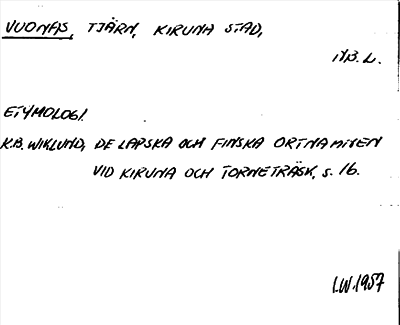 VUONAS, TJÄRN, KIRUNA STAD,
NB. L.
ETYMOLOGI.
K.B. WIKLUND, DE LAPSKA OCH FINSKA ORTNAMNEN
VID KIRUNA OCH TORNETRÄSK, s. 16.
I.W. 1957